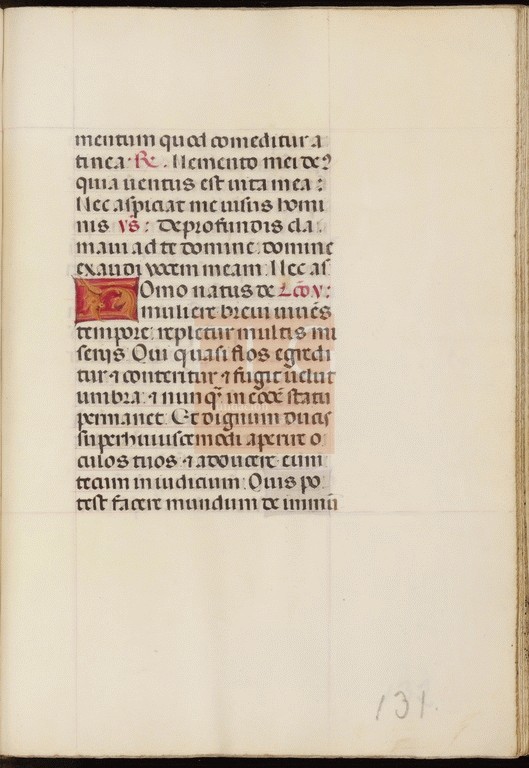 mentum quod comeditur a
tinea. R. Memento mei de9
quia uentus est uita mea:
Nec aspiciat me uisus homi
nis vs: De profundis cla
maui ad te domine: domine
exaudi vocem meam. Nec as
Homo natus de Lco v:
muliere breui uiuēs
tempore: repletur multis mi
seriis. Qui quasi flos egredi
tur ⁊ conteritur ⁊ fugit uelut
umbra: ⁊ nunq̄ in eodē statu
permanet. Et dignum ducis
super huiuscemodi aperire o
culos tuos ⁊ adducere eum
tecum in iudicium. Quis po
test facere mundum de inmū
131.